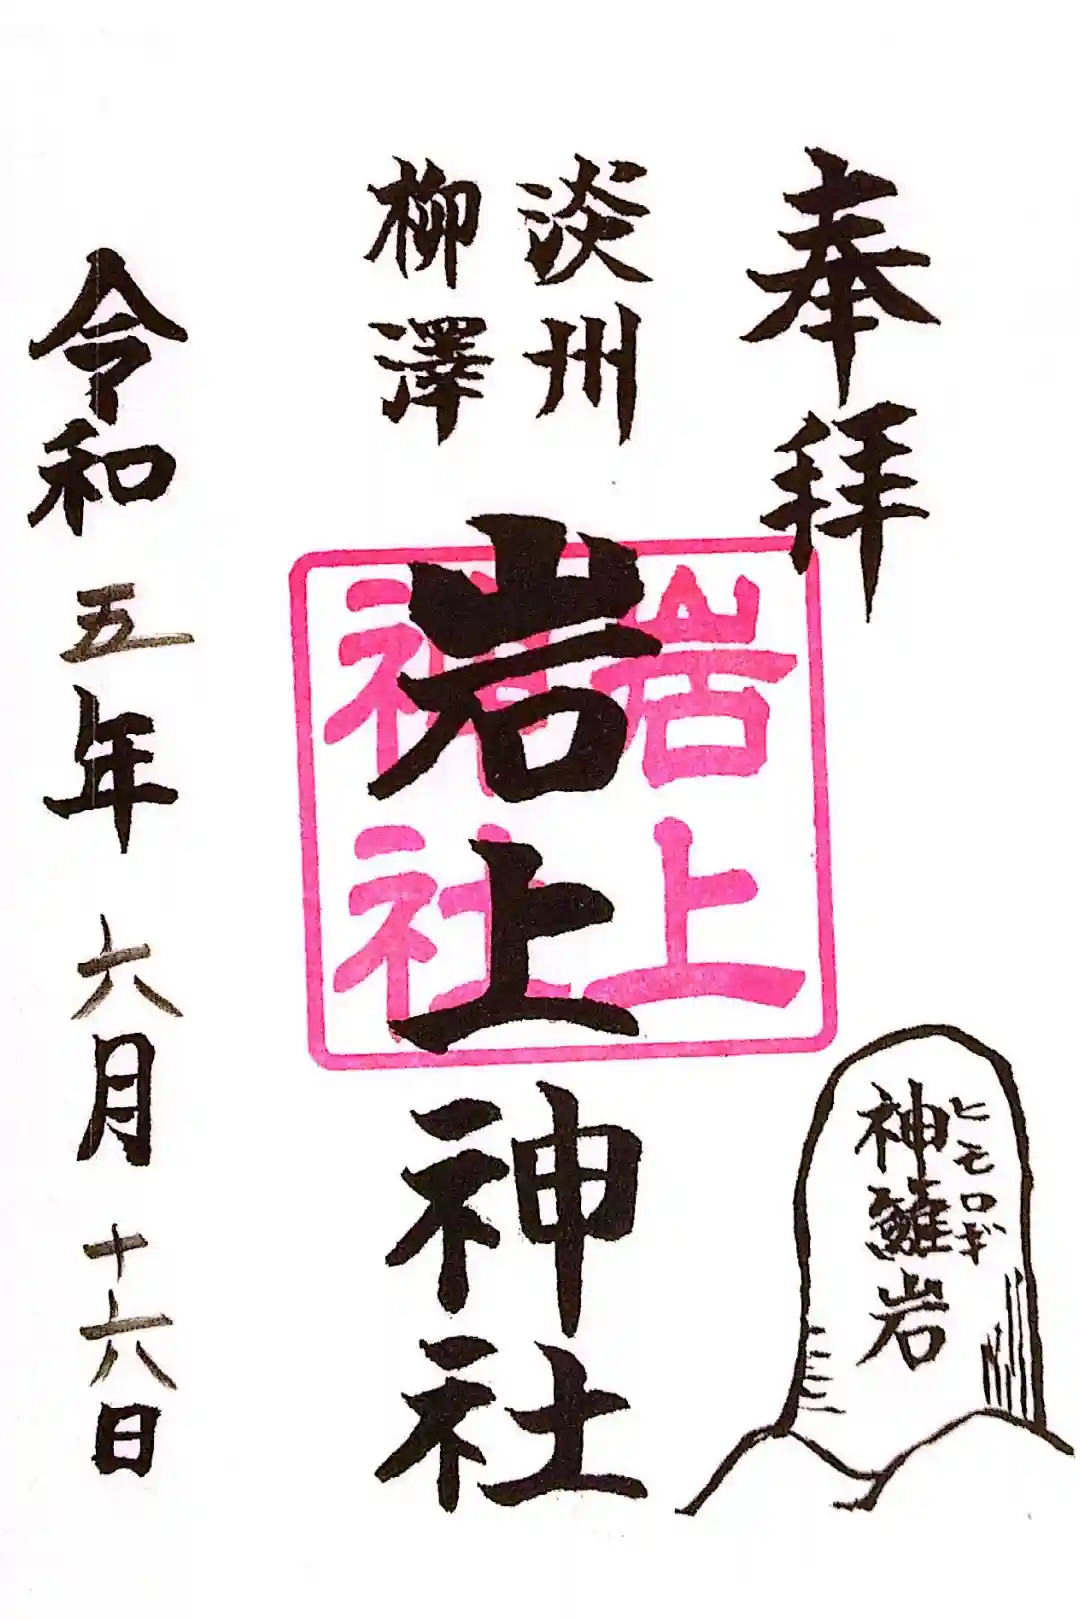 奉拝
淡州
柳澤
岩上神社
岩上
神社
神籬岩
ヒモロギ
令和五年六月十六日